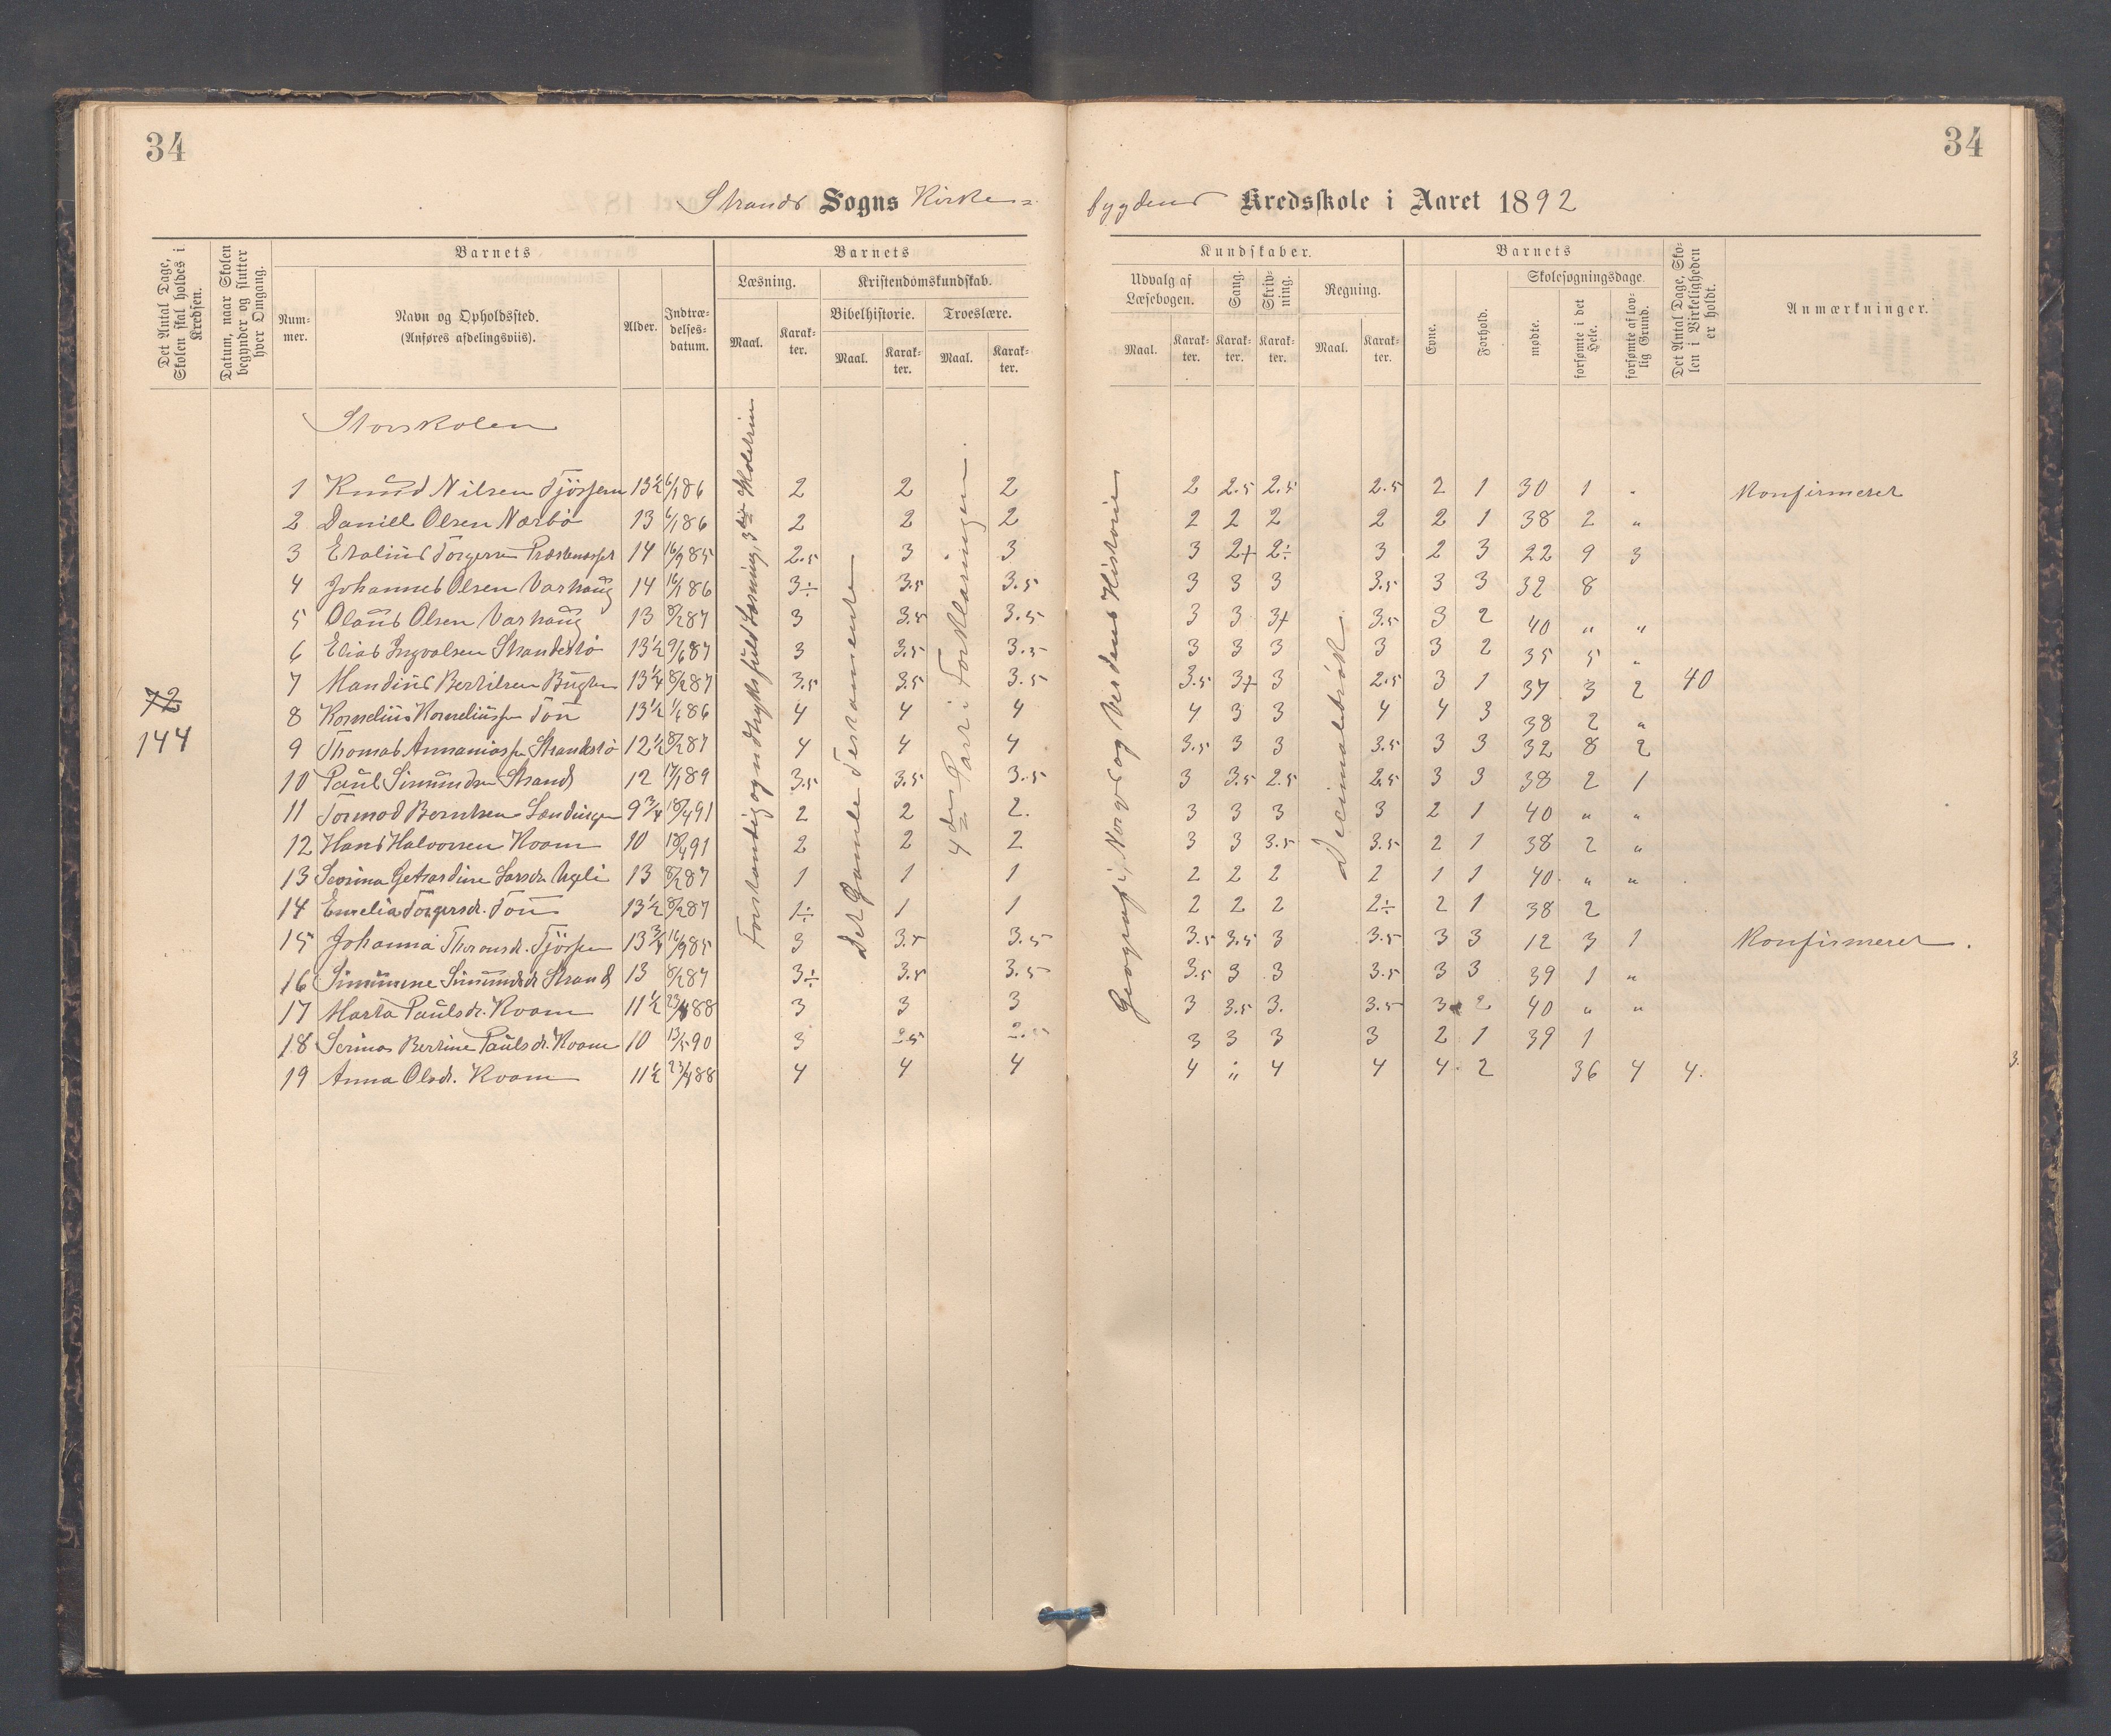 34
34
Strands Sogns Kirke=
bygdens Kredsskole i Aaret 1892
Det Antal Dage, Skolen skal holdes i Kredsen.
Datum, naar Skolen begynder og slutter hver Omgang.
Barnets
Nummer.
Navn og Opholdssted.
(Anføres afdelingsviis).
Alder.
Indtrædelsesdatum.
Barnets
Læsning.
Maal.
Karakter.
Kristendomskundskab.
Bibelhistorie.
Maal.
Karakter.
Troeslære.
Maal.
Karakter.
Kundskaber.
Udvalg af Læsebogen.
Maal.
Karakter.
Sang.
Karakter.
Skrivning.
Karakter.
Regning.
Maal.
Karakter.
Barnets
Evne.
Forhold.
Skolesøgningsdage.
mødte.
forsømte i det Hele.
forsømte af lovlig Grund.
Det Antal Dage, Skolen i Virkeligheden er holdt.
Anmærkninger.
Storskolen
72
144
Forstandig og udtryksfuld Læsning, 3die Skoletrin
Det Gamle Testamente
4des Part i Forklaringen.
Geografi, Norges og Verdens Historie
Decimalbrøk.
1 Knud Nilsen Tjössem 13½ 6/1 86 2 2 2 2 2.5 2.5 2.5 2 1 30 1 " Konfirmeret
2 Daniel Olsen Nærbö 13 6/1 86 2 2 2 2 2 2 2 2 1 38 2 "
3 Torgersen 14 16/9 85 2.5 3 3 3 2+ 2÷ 3 2 3 22 9 3
4 Johannes Olsen Varhaug 14 16/1 86 3÷ 3.5 3.5 3 3 3 3.5 3 3 32 8
5 Olaus Olsen Varhaug 13 8/2 87 3 3.5 3.5 3 3 3+ 3.5 3 2 40 " "
6 Elias Ingvalsen Strandstö 13½ 9/6 87 3 3.5 3.5 3 3 3 3 3 2 35 5 "
7 Mandius Bertilsen Bugten 13¼ 8/2 87 3.5 3.5 3.5 3.5 3+ 3 2.5 3 1 37 3 2 40
8 Kornelius Korneliussen Tou 13½ 1/6 86 4 4 4 4 3 3 4 4 3 38 2 "
9 Thomas Annaniassen Strandstö 12½ 8/2 87 4 4 4 3.5 3 3 3.5 3 3 32 8 2
10 Paul Simundsen Strand 12 17/1 89 3.5 3.5 3.5 3 3.5 2.5 2.5 3 3 38 2 1
11 Tormod Berntsen Lændingen 9¾ 18/4 91 2 2 2. 3 3 3 3 2 1 40 " "
12 Hans Halvorsen Kvam 10 18/4 91 2 2 2 3 3 3.5 3.5 2 1 38 2 "
13 Sevrina Larsdr. 13 8/2 87 1 1 1 2 2 2 2 1 1 40 " "
14 Emelia Torgersdr. Tou 13½ 8/2 87 1÷ 1 1 2 2 2 2÷ 2 1 38 2
15 Johanna Tjössem 13¾ 16/9 85 3 3.5 3.5 3.5 3.5 3 3.5 3 3 12 3 1 Konfirmeret.
16 Simumine Simundsdr. Strand 13 8/2 87 3÷ 3.5 3.5 3.5 3 3 3.5 3 3 39 1 "
17 Marta Paulsdr. Kvam 11½ 23/4 88 3 3 3 3 3.5 3. 3.5 3 2 40 " "
18 Serina Bertine Paulsdr. Kvam 10 13/5 90 3 2.5 2.5 3 3 3 3 2 1 39 1
19 Anna Olsdr. Kvam 11½ 23/4 88 4 4 4 4 " 4 4 4 2 36 4 4.